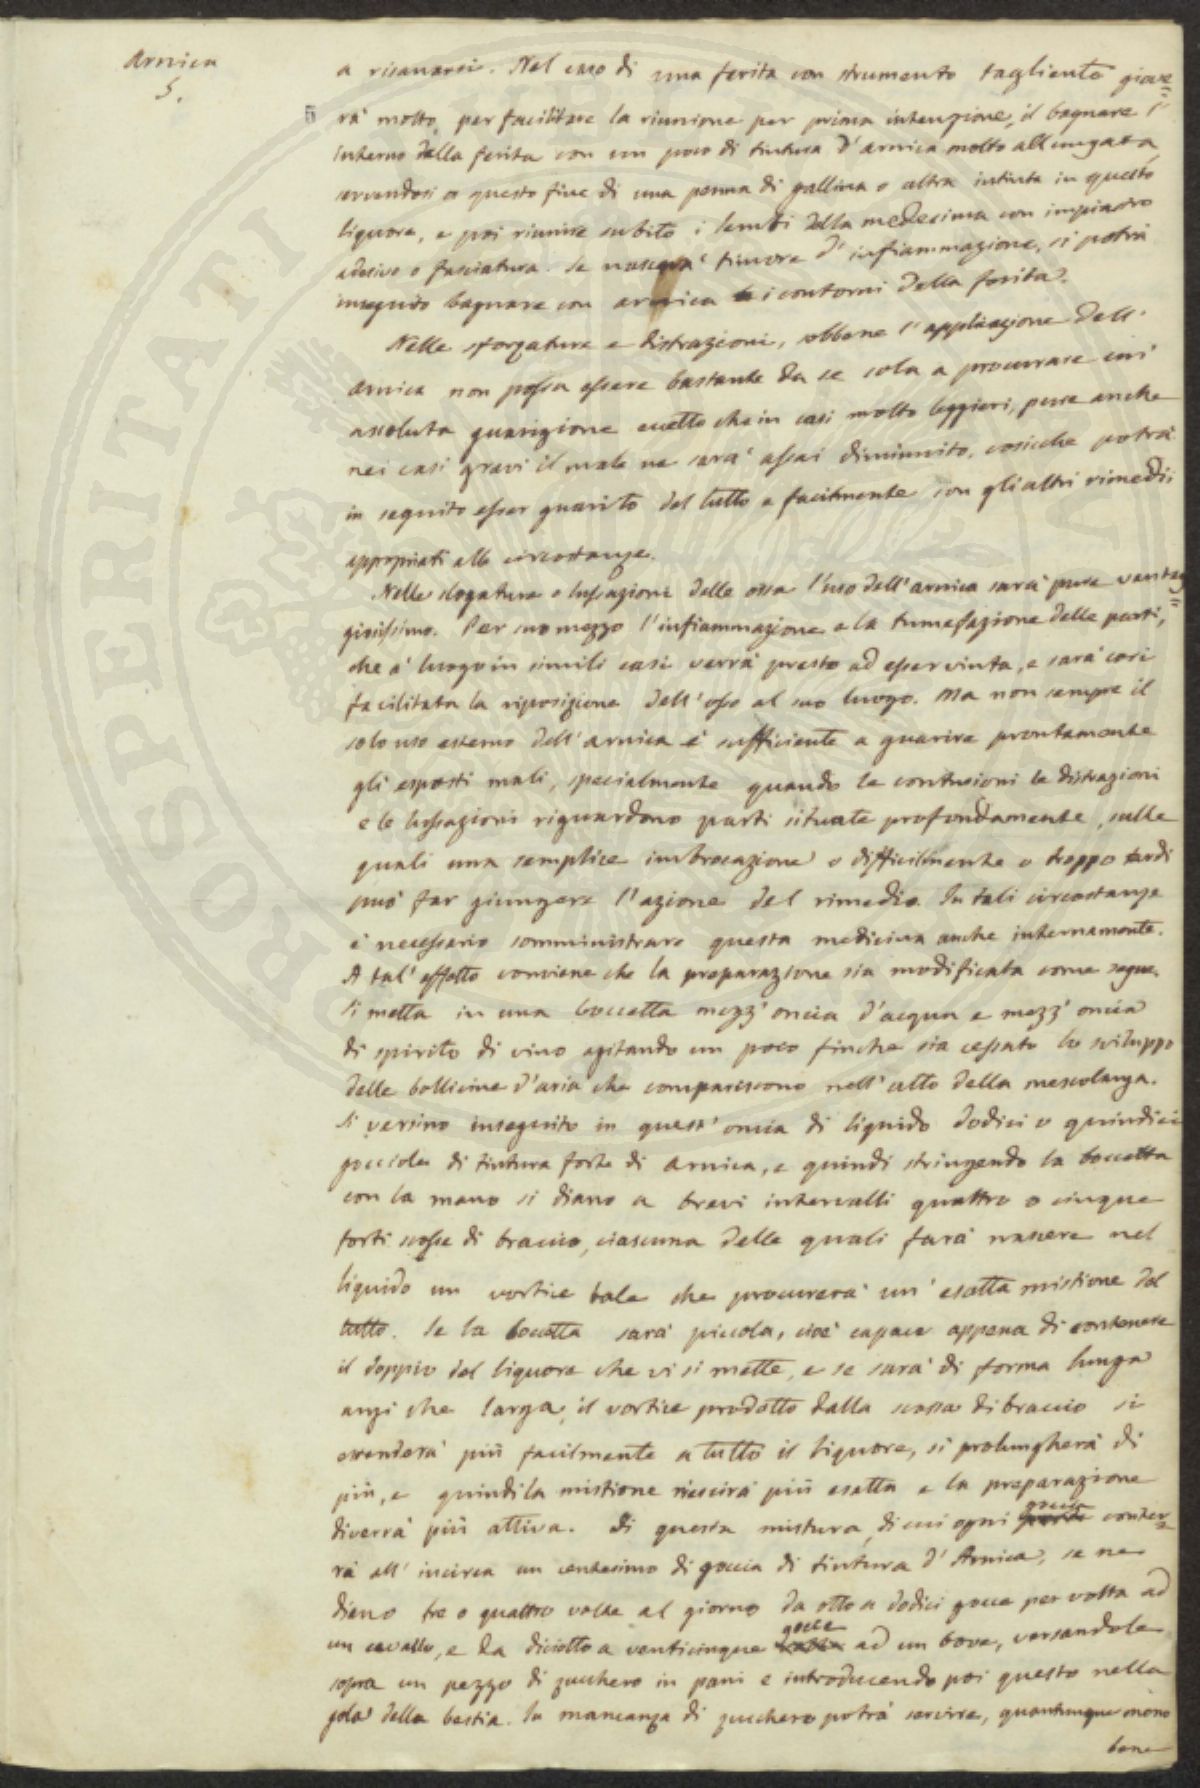 Arnica
5.
5
a risanarsi. Nel caso di una ferita con strumento tagliente giove=
rà molto, per facilitare la riunione per prima intenzione, il bagnare l'
interno della ferita con un poco di tintura d'arnica molto allungata
servendosi a questo fine di una penna di gallina o altra intinta in questo
liquore, e poi riunire subito i lembi della medesima con impiastro
adesivo o fasciatura. Se nascerà timore d'infiammazione, si potrà
inseguito bagnare con arnica i contorni della ferita.
Nelle storzature e distrazioni, sebbene l'applicazione dell'
arnica non possa essere bastante da se sola a procurare un'
assoluta guarigione eccetto che in casi molto leggieri, pure anche
nei casi gravi il male ne sarà assai diminuito, cosicche potrà
in seguito esser guarito del tutto e facilmente con gli altri rimedii
appropriati alle circostanze.
Nelle slogature o lussazioni delle ossa l'uso dell'arnica sarà pure vantag=
giosissimo. Per suo mezzo l'infiammazione e la tumefazione delle parti,
che à luogo in simili casi verrà presto ad esser vinta, e sarà così
facilitata la riposizione dell'osso al suo luogo. Ma non sempre il
solo uso esterno dell'arnica è sufficiente a guarire prontamente
gli esposti mali, specialmente quando le contusioni le distrazioni
e le lussazioni riguardono parti situate profondamente, sulle
quali una semplice imbrocazione o difficilmente o troppo tardi
può far giungere l'azione del rimedio. In tali circostanze
è necessario somministrare questa medicina anche internamente.
A tal'effetto conviene che la preparazione sia modificata come segue.
Si metta in una boccetta mezz'oncia d'acqua e mezz'oncia
di spirito di vino agitando un poco finche sia cessato lo sviluppo
delle bollicine d'aria che compariscono nell'atto della mescolanza.
Si versino inseguito in quest'oncia di liquido dodici o quindici
gocciole di tintura forte di Arnica, e quindi stringendo la boccetta
con la mano si diano a brevi intervalli quattro o cinque
forti scosse di braccio, ciascuna delle quali farà nascere nel
liquido un vortice tale che procurerà un'esatta mistione del
tutto. Se la boccetta sarà piccola, cioè capace appena di contenere
il doppio del liquore che vi si mette, e se sarà di forma lunga
anzi che larga, il vortice prodotto dalla scossa di braccio si
estenderà più facilmente a tutto il liquore, si prolungherà di
più, e quindi la mistione riescirà più esatta e la preparazione
diverrà più attiva. Di questa mistura, di cui ogni goccia conter=
rà all'incirca un centesimo di goccia di tintura d'Arnica, se ne
dieno tre o quattro volte al giorno da otto a dodici gocce per volta ad
un cavallo, e da diciotto a venticinque gocce ad un bove, versandole
sopra un pezzo di zucchero in pani e introducendo poi questo nella
gola della bestia. In mancanza di zucchero potrà servire, quantunque meno
bene
PROSPERITATI